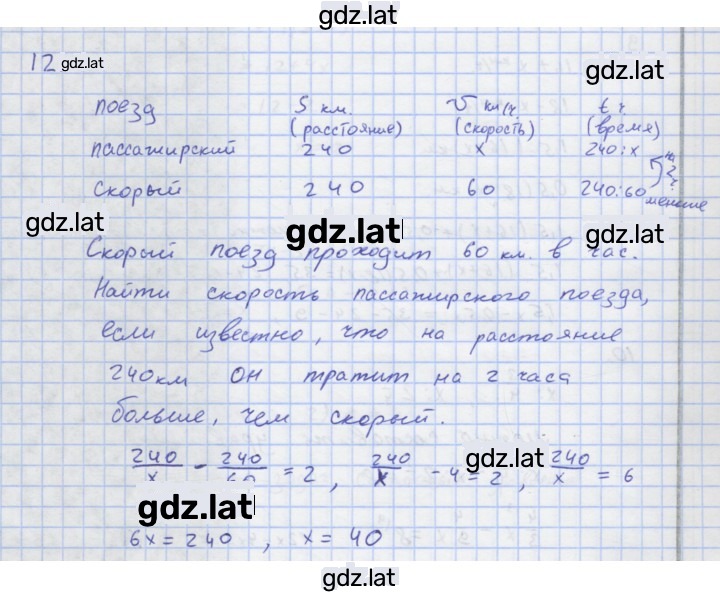 gdz.lat
12 gdz.lat
gdz.lat
поезд S км. (расстояние) V км/ч. (скорость) t ч. (время)
пассажирский 240 x 240:x
на 2 ч. меньше
Скорый 240 60 240:60
gdz.lat gdz.lat gdz.lat
Скорый поезд проходит 60 км. в час.
Найти скорость пассажирского поезда,
если известно, что на расстояние
240км он тратит на 2 часа
больше, чем скорый.
240/x - 240/60 = 2, 240/x - 4 = 2, 240/x = 6
gdz.lat
gdz.lat
6x = 240, x = 40
gdz.lat